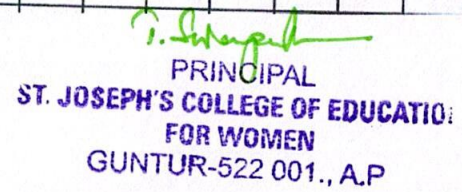 PRINCIPAL
ST. JOSEPH'S COLLEGE OF EDUCATIO
FOR WOMEN
GUNTUR-522 001., A.P